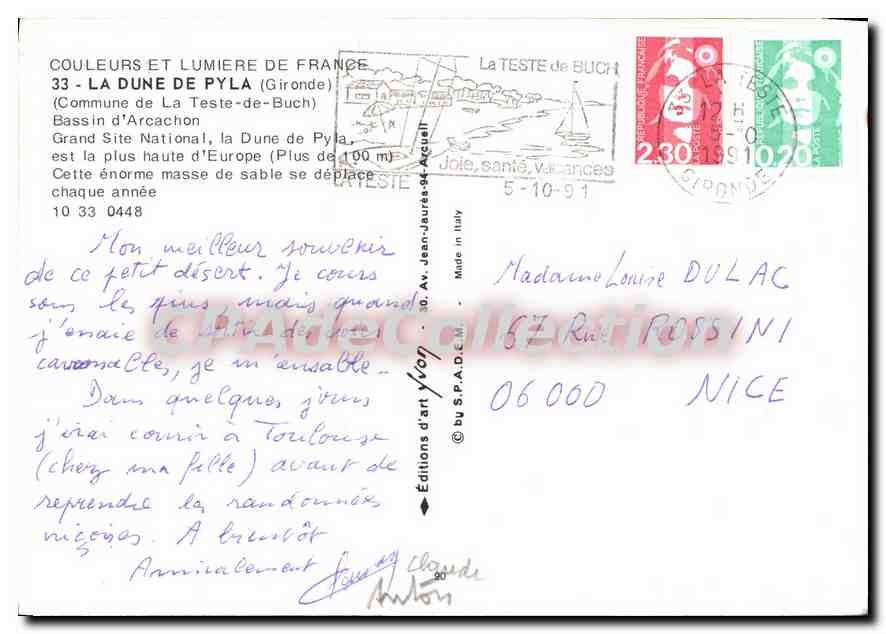 COULEURS ET LUMIERE DE FRANCE
33 - LA DUNE DE PYLA (Gironde)
(Commune de La Teste-de-Buch)
Bassin d'Arcachon
Grand Site National, la Dune de Pyla,
est la plus haute d'Europe (Plus de 100 m)
Cette énorme masse de sable se déplace
chaque année
10 33 0448
La TESTE de BUCH
Joie, santé, vacances
LA TESTE
5-10-91
REPUBLIQUE FRANÇAISE
2,30
LA POSTE
REPUBLIQUE FRANÇAISE
0,20
LA POSTE
33 LA TESTE
12 H
5-10
1991
GIRONDE
Mon meilleur souvenir
de ce petit désert. Je cours
sous les pins mais quand
j'essaie de sortir des voies
carrossables, je m'ensable..
Dans quelques jours
j'irai courir à Toulouse
(chez ma fille) avant de
reprendre les randonnées
niçoises. A bientôt
Amicalement
Claude
Anton
Editions d'art yvon - 30. Av. Jean-Jaurès-94-Arcueil
© by S.P.A.D.E.M. - Made in Italy
90
Madame Louise DULAC
67 Rue ROSSINI
06000 NICE
CPAdeCollection